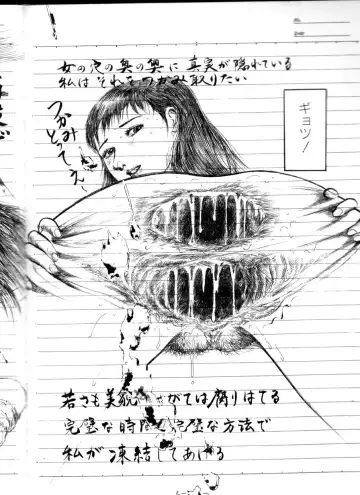 女の穴の奥の奥に 真実が隠れている
私はそれをつかみ取りたい
ギョッ!
つかみ
とってぇ〜
若さも美貌もやがては腐りはてる
完璧な時間を完璧な方法で
私が凍結してあげる